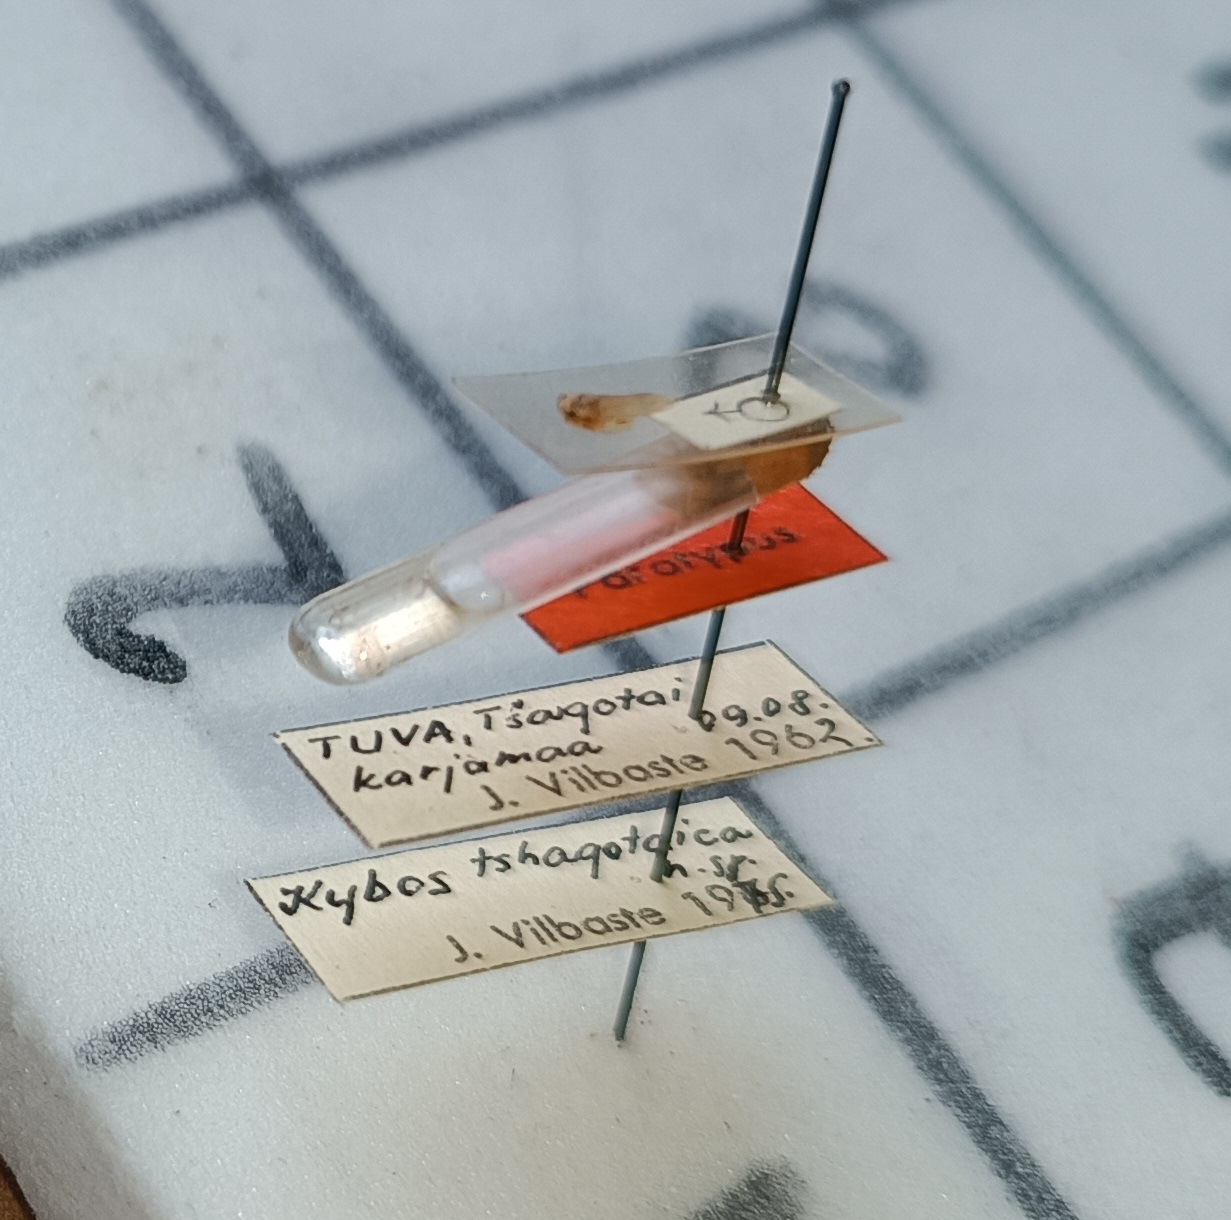 Paratypus
TUVA, Tšagotai
karjamaa 09.08.
J. Vilbaste 1962.
Kybos tshagotaica
n. sp.
J. Vilbaste